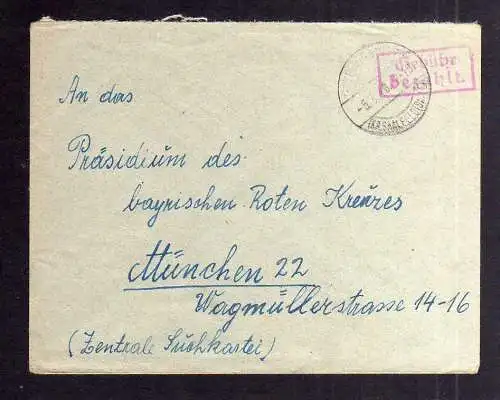 Gebühr
bezahlt.
(KR. SAALFELD/S)
An das
Präsidium des
bayrischen Roten Kreuzes
München 22
Wagmüllerstrasse 14-16
(Zentrale Suchkartei)